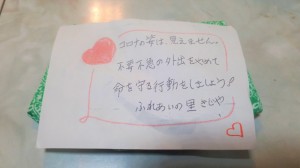 コロナの姿は見えません。
不要不急の外出をやめて
命を守る行動をしましょう♪
ふれあいの里 さじや